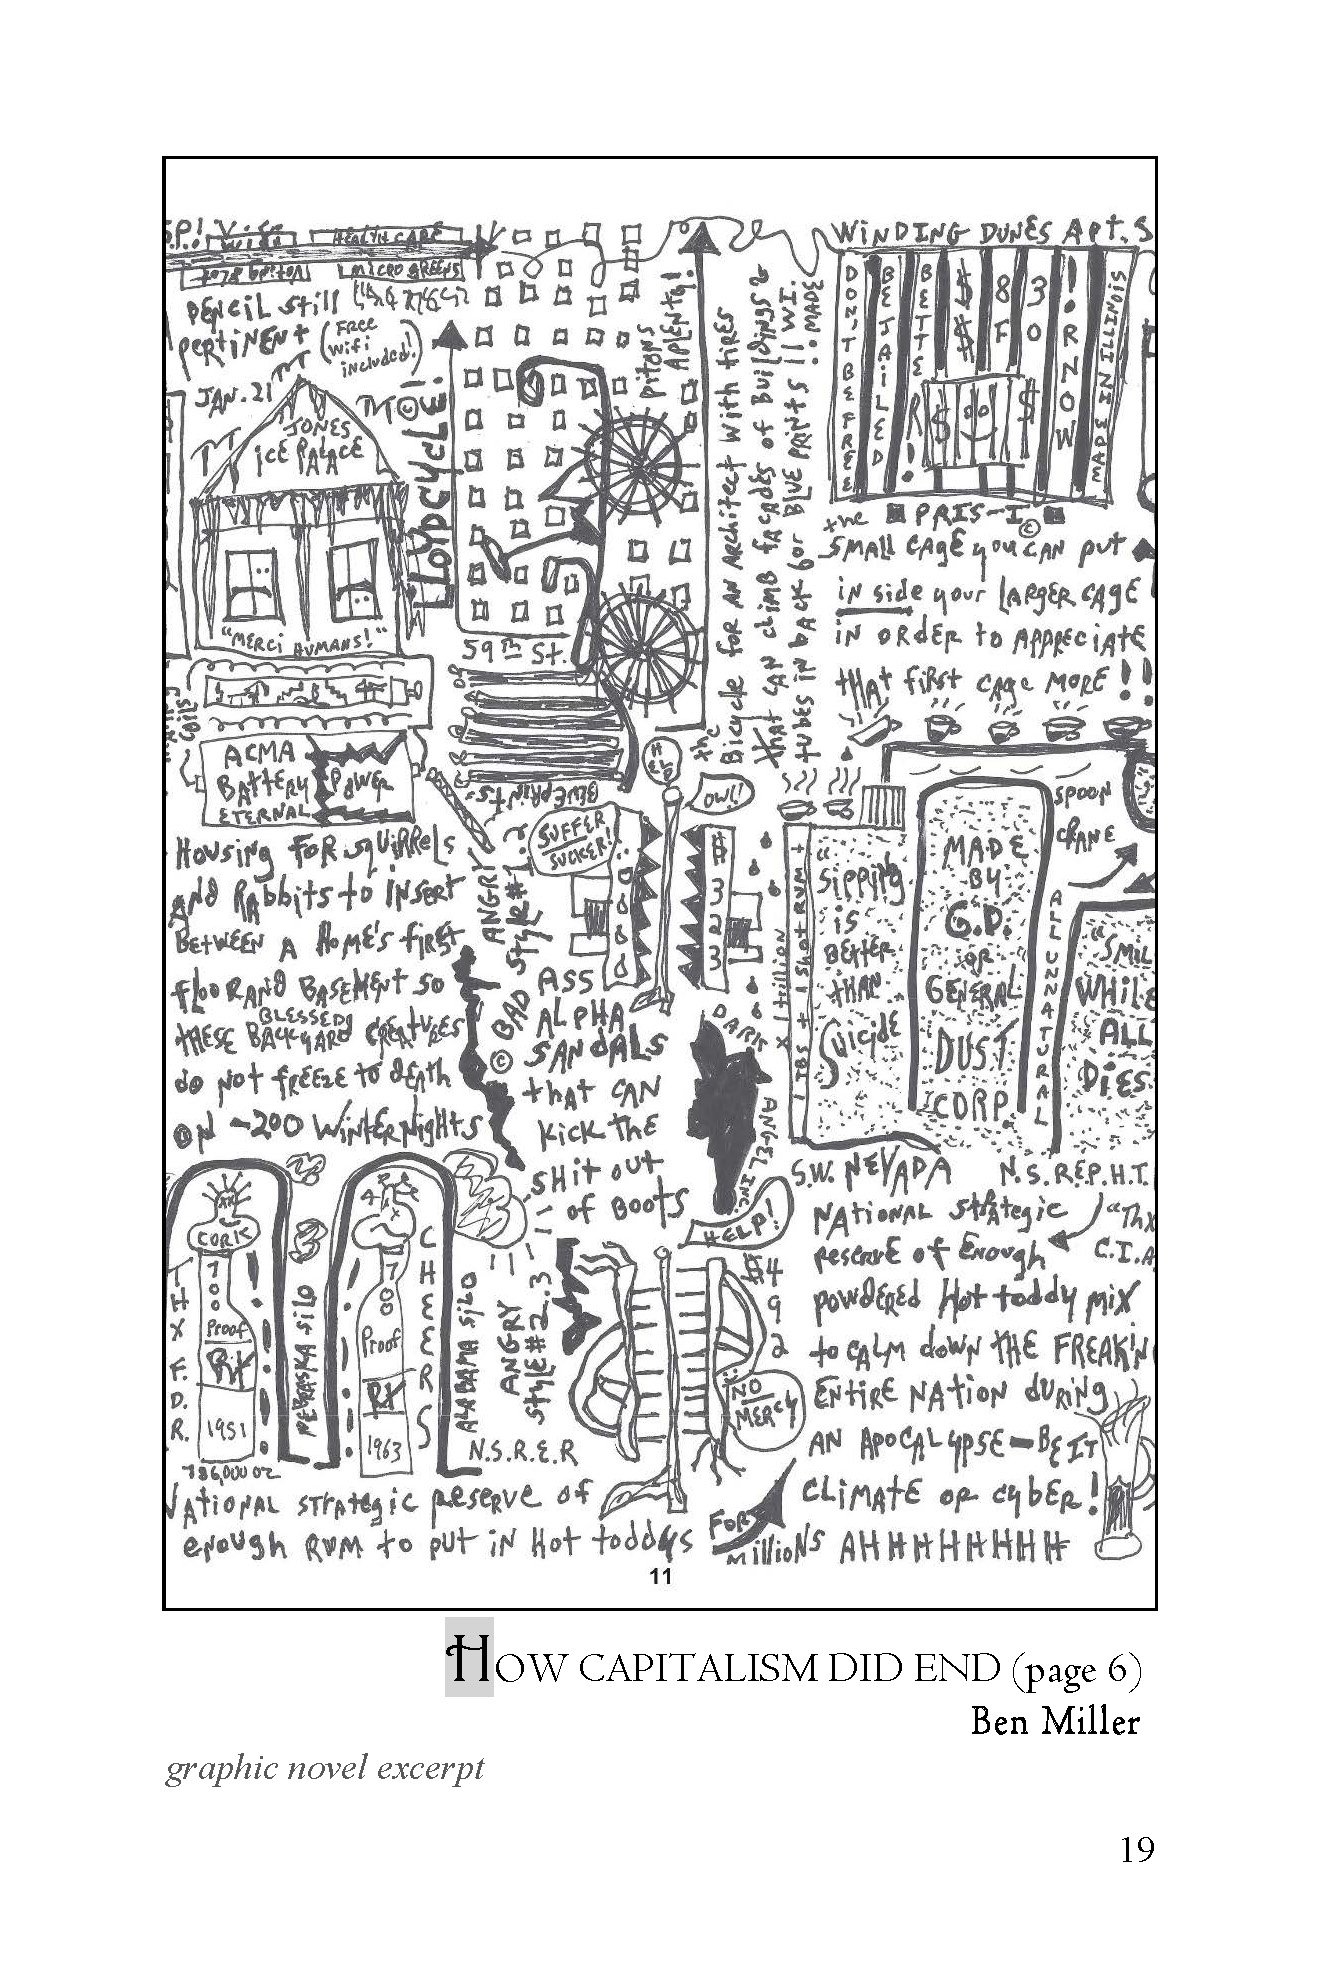 S.P.! Wifi
HEALTH CARE
MICRO GREENS
PENCIL Still
PERTINENT
(FREE
WiFi
included!)
JAN. 21
JONES
ICE PALACE
"MERCI HUMANS!"
ACMA
BATTERY
ETERNAL
POWER
HOUSING FOR SQUIRRELS
AND RABBITS to INSERT
BETWEEN A HOME'S FIRST
FLOOR AND BASEMENT SO
THESE BLESSED BACKYARD CREATURES
do NOT FREEZE to DEATH
ON -200 WINTER NIGHTS
LLOYDCYCLE!
59TH St.
BLUEPRINTS
PITONS
APLENTY!
the
Bicycle FOR AN ARCHITECT WITH tiRES
that CAN CLIMB FACADES OF BUILDINGS &
TUBES IN BACK FOR BLUE PRINTS !! WI. MADE
WINDING DUNES APT.S
DON'T BE FREE
BE JAILED
BETTER!
$$$
8 F
30
! OR NOW
MADE IN ILLINOIS
the PRIS-I ©
SMALL CAGE YOU CAN PUT
IN SIDE YOUR LARGER CAGE
IN ORDER to APPRECIATE
tHAT FIRST CAGE MORE!!
SPOON
CRANE
MADE
BY
G.D.
OR
GENERAL
DUST
CORP.
ALL UNNATURAL
"SIPPING
IS
BETTER
THAN
SUICIDE
1 TBS + 1 SHOT RUM +
X trillion
"SMIL
WHILE
ALL
DIES
S.W. NEVADA
N.S.R.E.P.H.T.
NATIONAL STRATEGIC
RESERVE OF ENOUGH
POWDERED HOT TODDY MIX
to CALM dOWN tHE FREAK'N
ENTIRE NATION DURING
AN APOCALYPSE - BE IT
CLIMATE OR CYBER!
AHHHHHHHH
"THX
C.I.A
OW!
SUFFER
SUCKER!
$323
ANGRY
STYLE #1
© BAD
ASS
ALPHA
SANDALS
that CAN
KICK THE
SHIT OUT
OF BOOTS
DARK
ANGEL INC.
HELP!
$492
NO
MERCY
ANGRY
STYLE #2..3
CORK
700
Proof
RX
1951
THX F.D.R.
786,000 OZ
NEBRASKA SILO
700
Proof
RX
1963
CHEERS
ALABAMA SILO
N.S.R.E.R
NATIONAL STRATEGIC RESERVE OF
ENOUGH RUM to PUT IN HOT TODDYS
FOR
MILLIONS
11
HOW CAPITALISM DID END (page 6)
Ben Miller
graphic novel excerpt
19